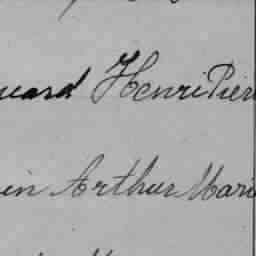 uard Henri Pier
in Arthur Mari